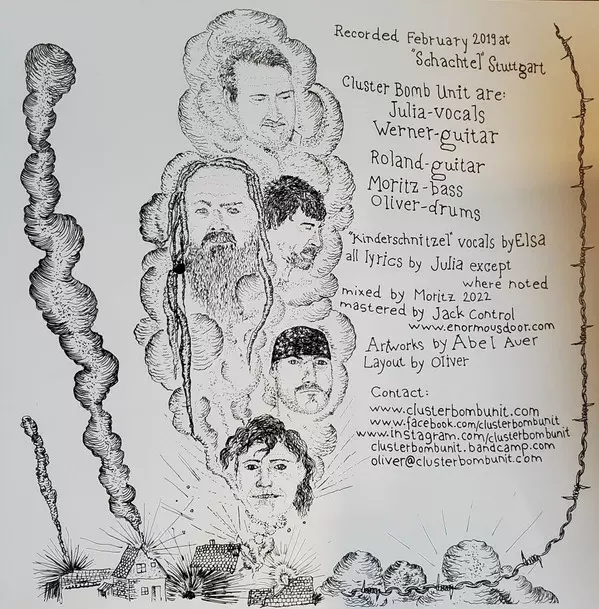 Recorded February 2019 at
"Schachtel" Stuttgart
Cluster Bomb Unit are:
Julia-vocals
Werner-guitar
Roland-guitar
Moritz-bass
Oliver-drums
"Kinderschnitzel" vocals by Elsa
all lyrics by Julia except
where noted
mixed by Moritz 2022
mastered by Jack Control
www.enormousdoor.com
Artworks by Abel Auer
Layout by Oliver
Contact:
www.clusterbombunit.com
www.facebook.com/clusterbombunit
www.instagram.com/clusterbombunit
clusterbombunit.bandcamp.com
oliver@clusterbombunit.com